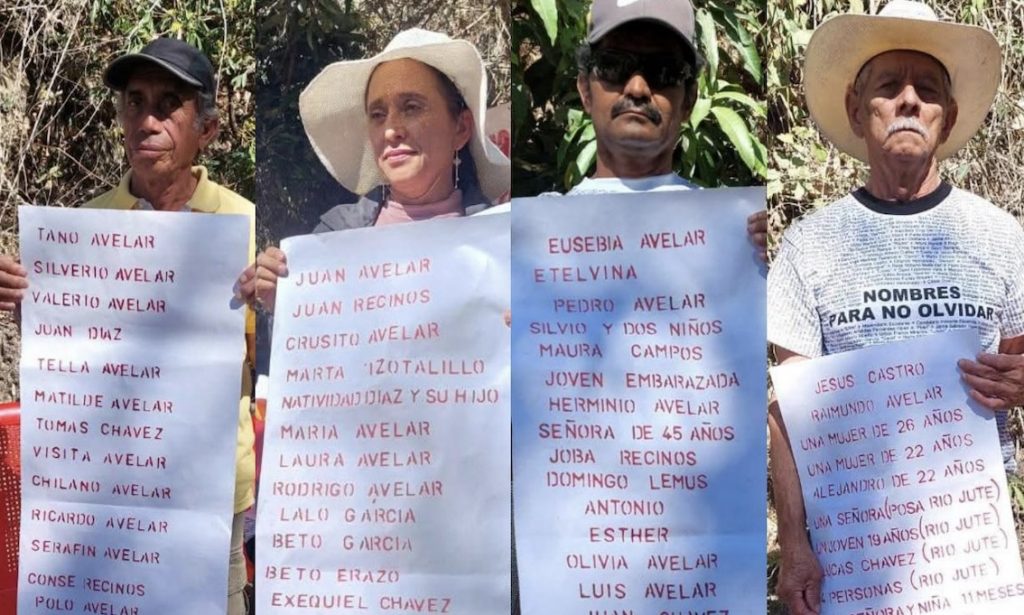 TANO AVELAR
SILVERIO AVELAR
VALERIO AVELAR
JUAN DIAZ
TELLA AVELAR
MATILDE AVELAR
TOMAS CHAVEZ
VISITA AVELAR
CHILANO AVELAR
RICARDO AVELAR
SERAFIN AVELAR
CONSE RECINOS
POLO AVELAR
JUAN AVELAR
JUAN RECINOS
CRUSITO AVELAR
MARTA IZOTALILLO
NATIVIDAD DIAZ Y SU HIJO
MARIA AVELAR
LAURA AVELAR
RODRIGO AVELAR
LALO GARCIA
BETO GARCIA
BETO ERAZO
EXEQUIEL CHAVEZ
EUSEBIA AVELAR
ETELVINA
PEDRO AVELAR
SILVIO Y DOS NIÑOS
MAURA CAMPOS
JOVEN EMBARAZADA
HERMINIO AVELAR
SEÑORA DE 45 AÑOS
JOBA RECINOS
DOMINGO LEMUS
ANTONIO
ESTHER
OLIVIA AVELAR
LUIS AVELAR
JUAN CHAVEZ
NOMBRES
PARA NO OLVIDAR
JESUS CASTRO
RAIMUNDO AVELAR
UNA MUJER DE 26 AÑOS
UNA MUJER DE 22 AÑOS
ALEJANDRO DE 22 AÑOS
UNA SEÑORA (POSA RIO JUTE)
UN JOVEN 19 AÑOS (RIO JUTE)
LUCAS CHAVEZ (RIO JUTE)
PERSONAS (RIO JUTE)
SEÑORA Y NIÑA 11 MESES